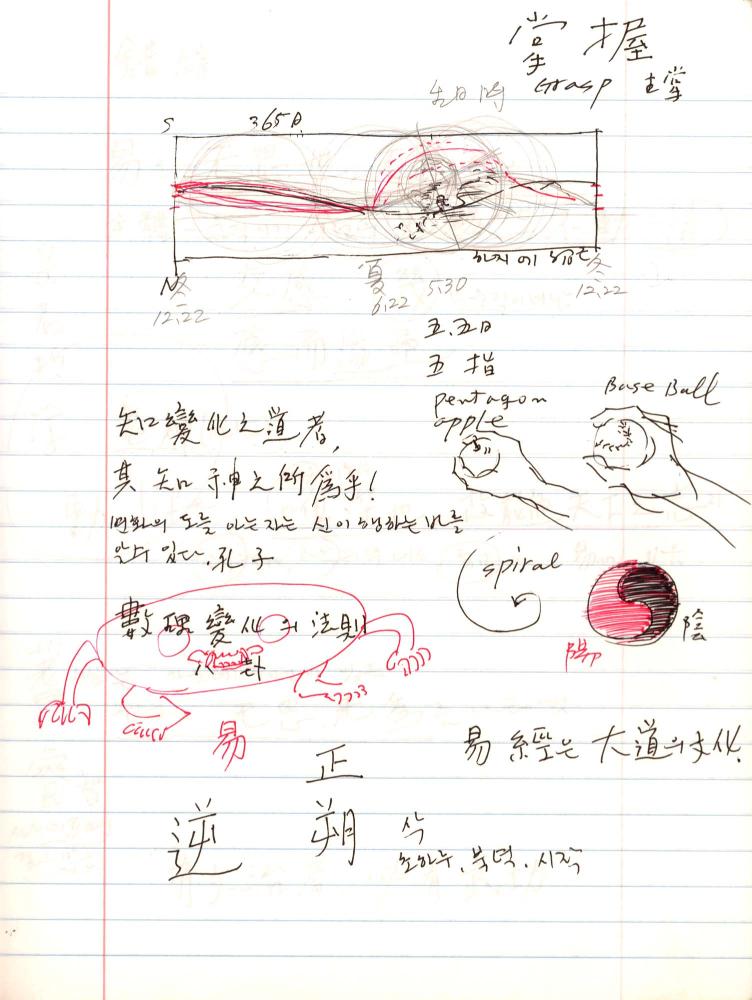 掌握
Grasp 主掌
生日時
S 365日
하지에
N
冬 夏 5.30 冬
12.22 6.22 12.22
五.五日
五 指
pentagon
apple
Base Ball
知變化之道者,
其知神之所爲乎!
변화의 도를 아는자는 신이 행하는바를
알수 있다. 孔子
spiral
陽 陰
數理變化의 法則
八卦
易
易經은 大道의 文化.
正
逆 朔 삭
초하루. 북녘. 시작